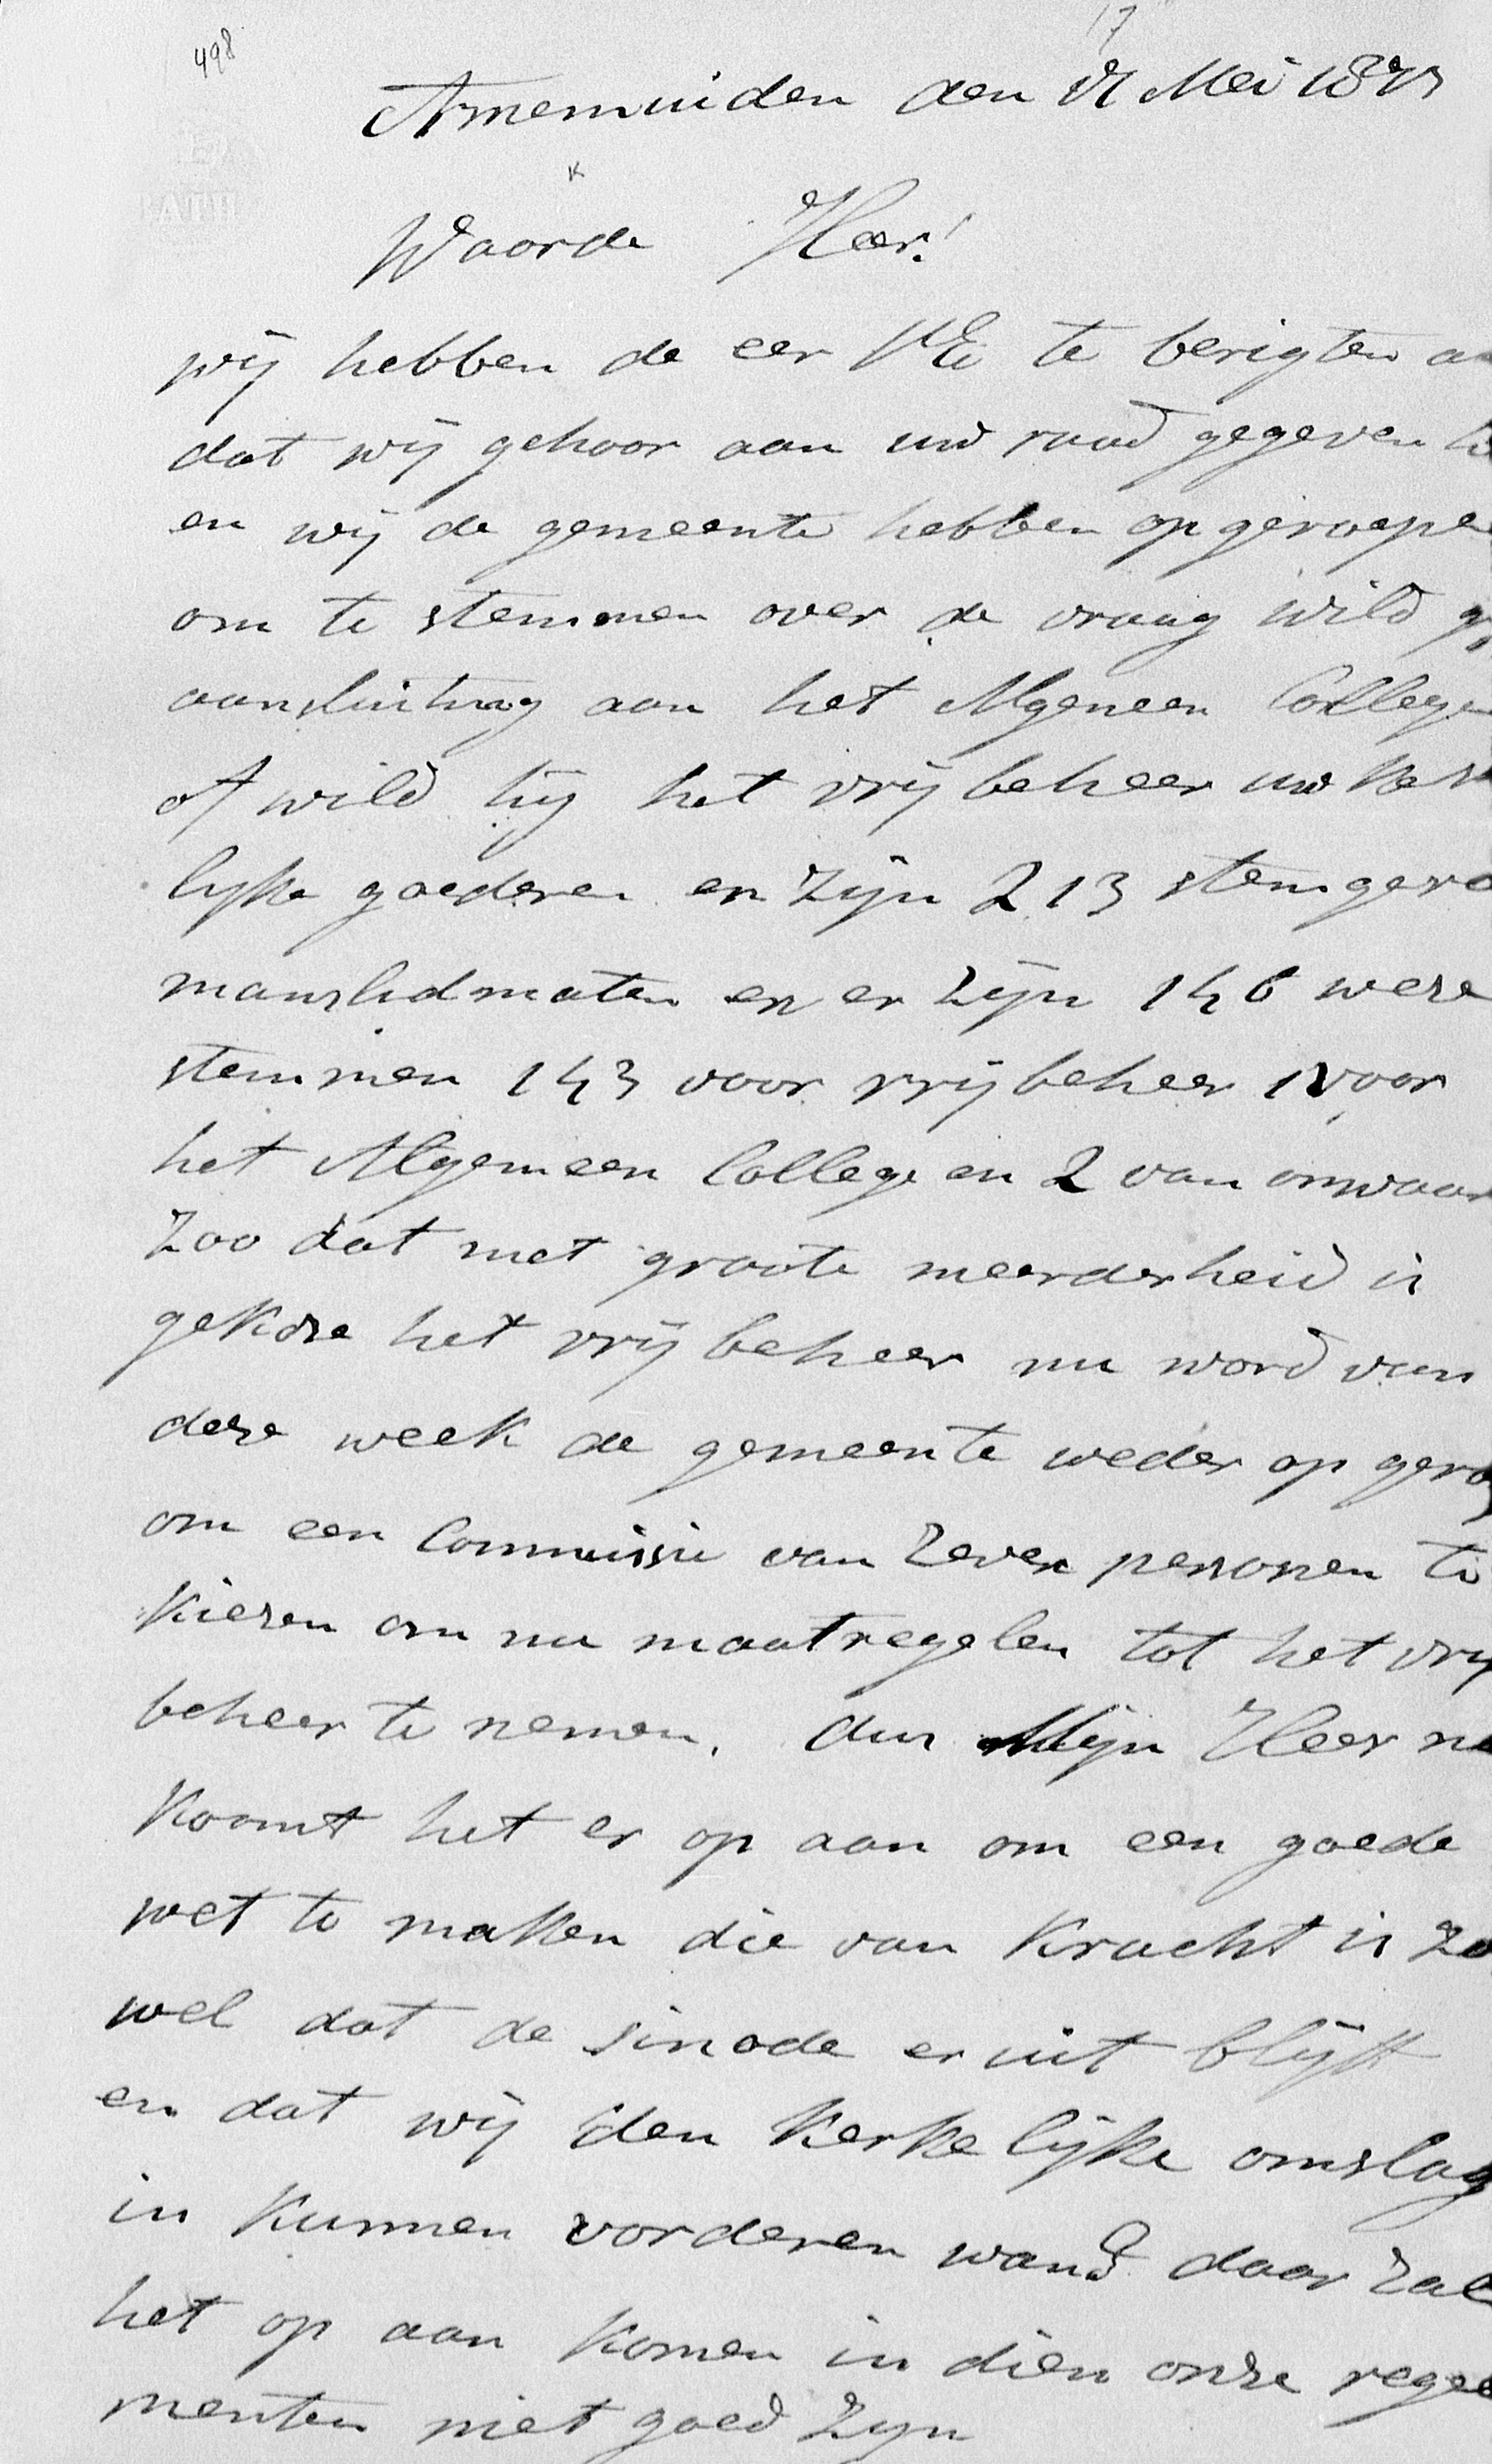 498
17
Arnemuiden den 17 Mei 1873
Waarde Heer!
wij hebben de eer UE te berigten
dat wij gehoor aan uw raad gegeven
en wij de gemeente hebben op geroepe
om te stemmen over de vraag wild gy
aansluiting aan het Algemeen College
of wild gij het vrij beheer uw kerk
lyke goederen er zijn 213 stemgere
manslidmaten en er zijn 146 weze
stemmen 143 voor vrij beheer 1 voor
het Algemeen College en 2 van onwaar
Zoo dat met groote meerderheid is
gekoze het vrij beheer nu word van
deze week de gemeente weder op gero
om een Commissie van Zeven personen te
kiezen om nu maatregelen tot het vry
beheer te nemen. dus Mijn Heer nu
koomt het er op aan om een goede
wet te maken die van kracht is zo
wel dat de sinode er uit blijft
en dat wij den kerkelijke omslag
in kunnen vorderen wand daar zal
het op aan komen in dien onze regle
menten niet goed zyn